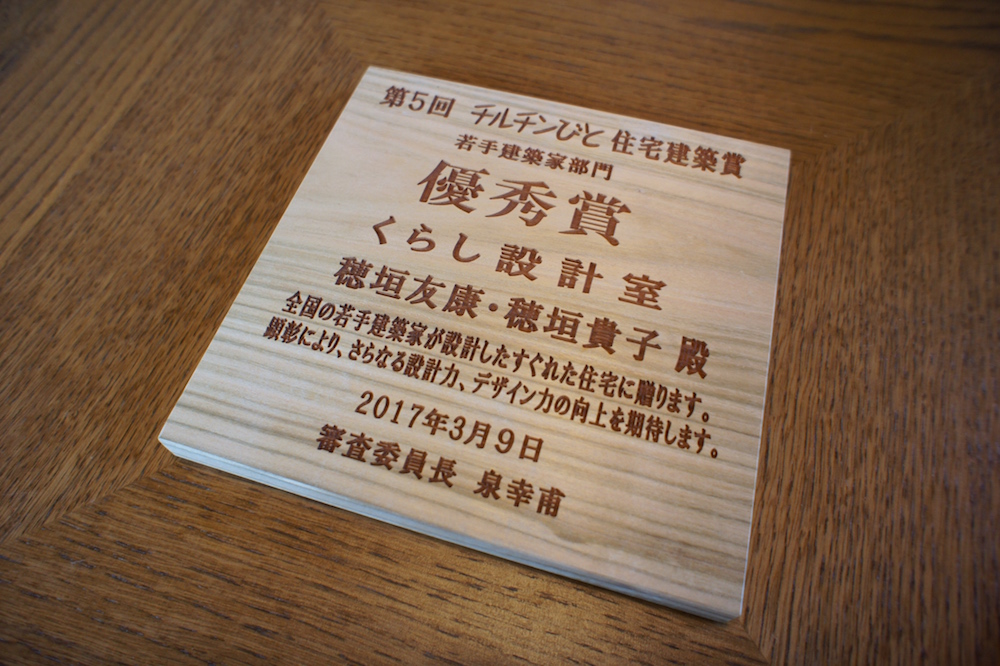 第5回 チルチンびと 住宅建築賞
若手建築家部門
優秀賞
くらし設計室
穂垣友康・穂垣貴子 殿
全国の若手建築家が設計したすぐれた住宅に贈ります。
顕彰により、さらなる設計力、デザイン力の向上を期待します。
2017年3月9日
審査委員長 泉幸甫